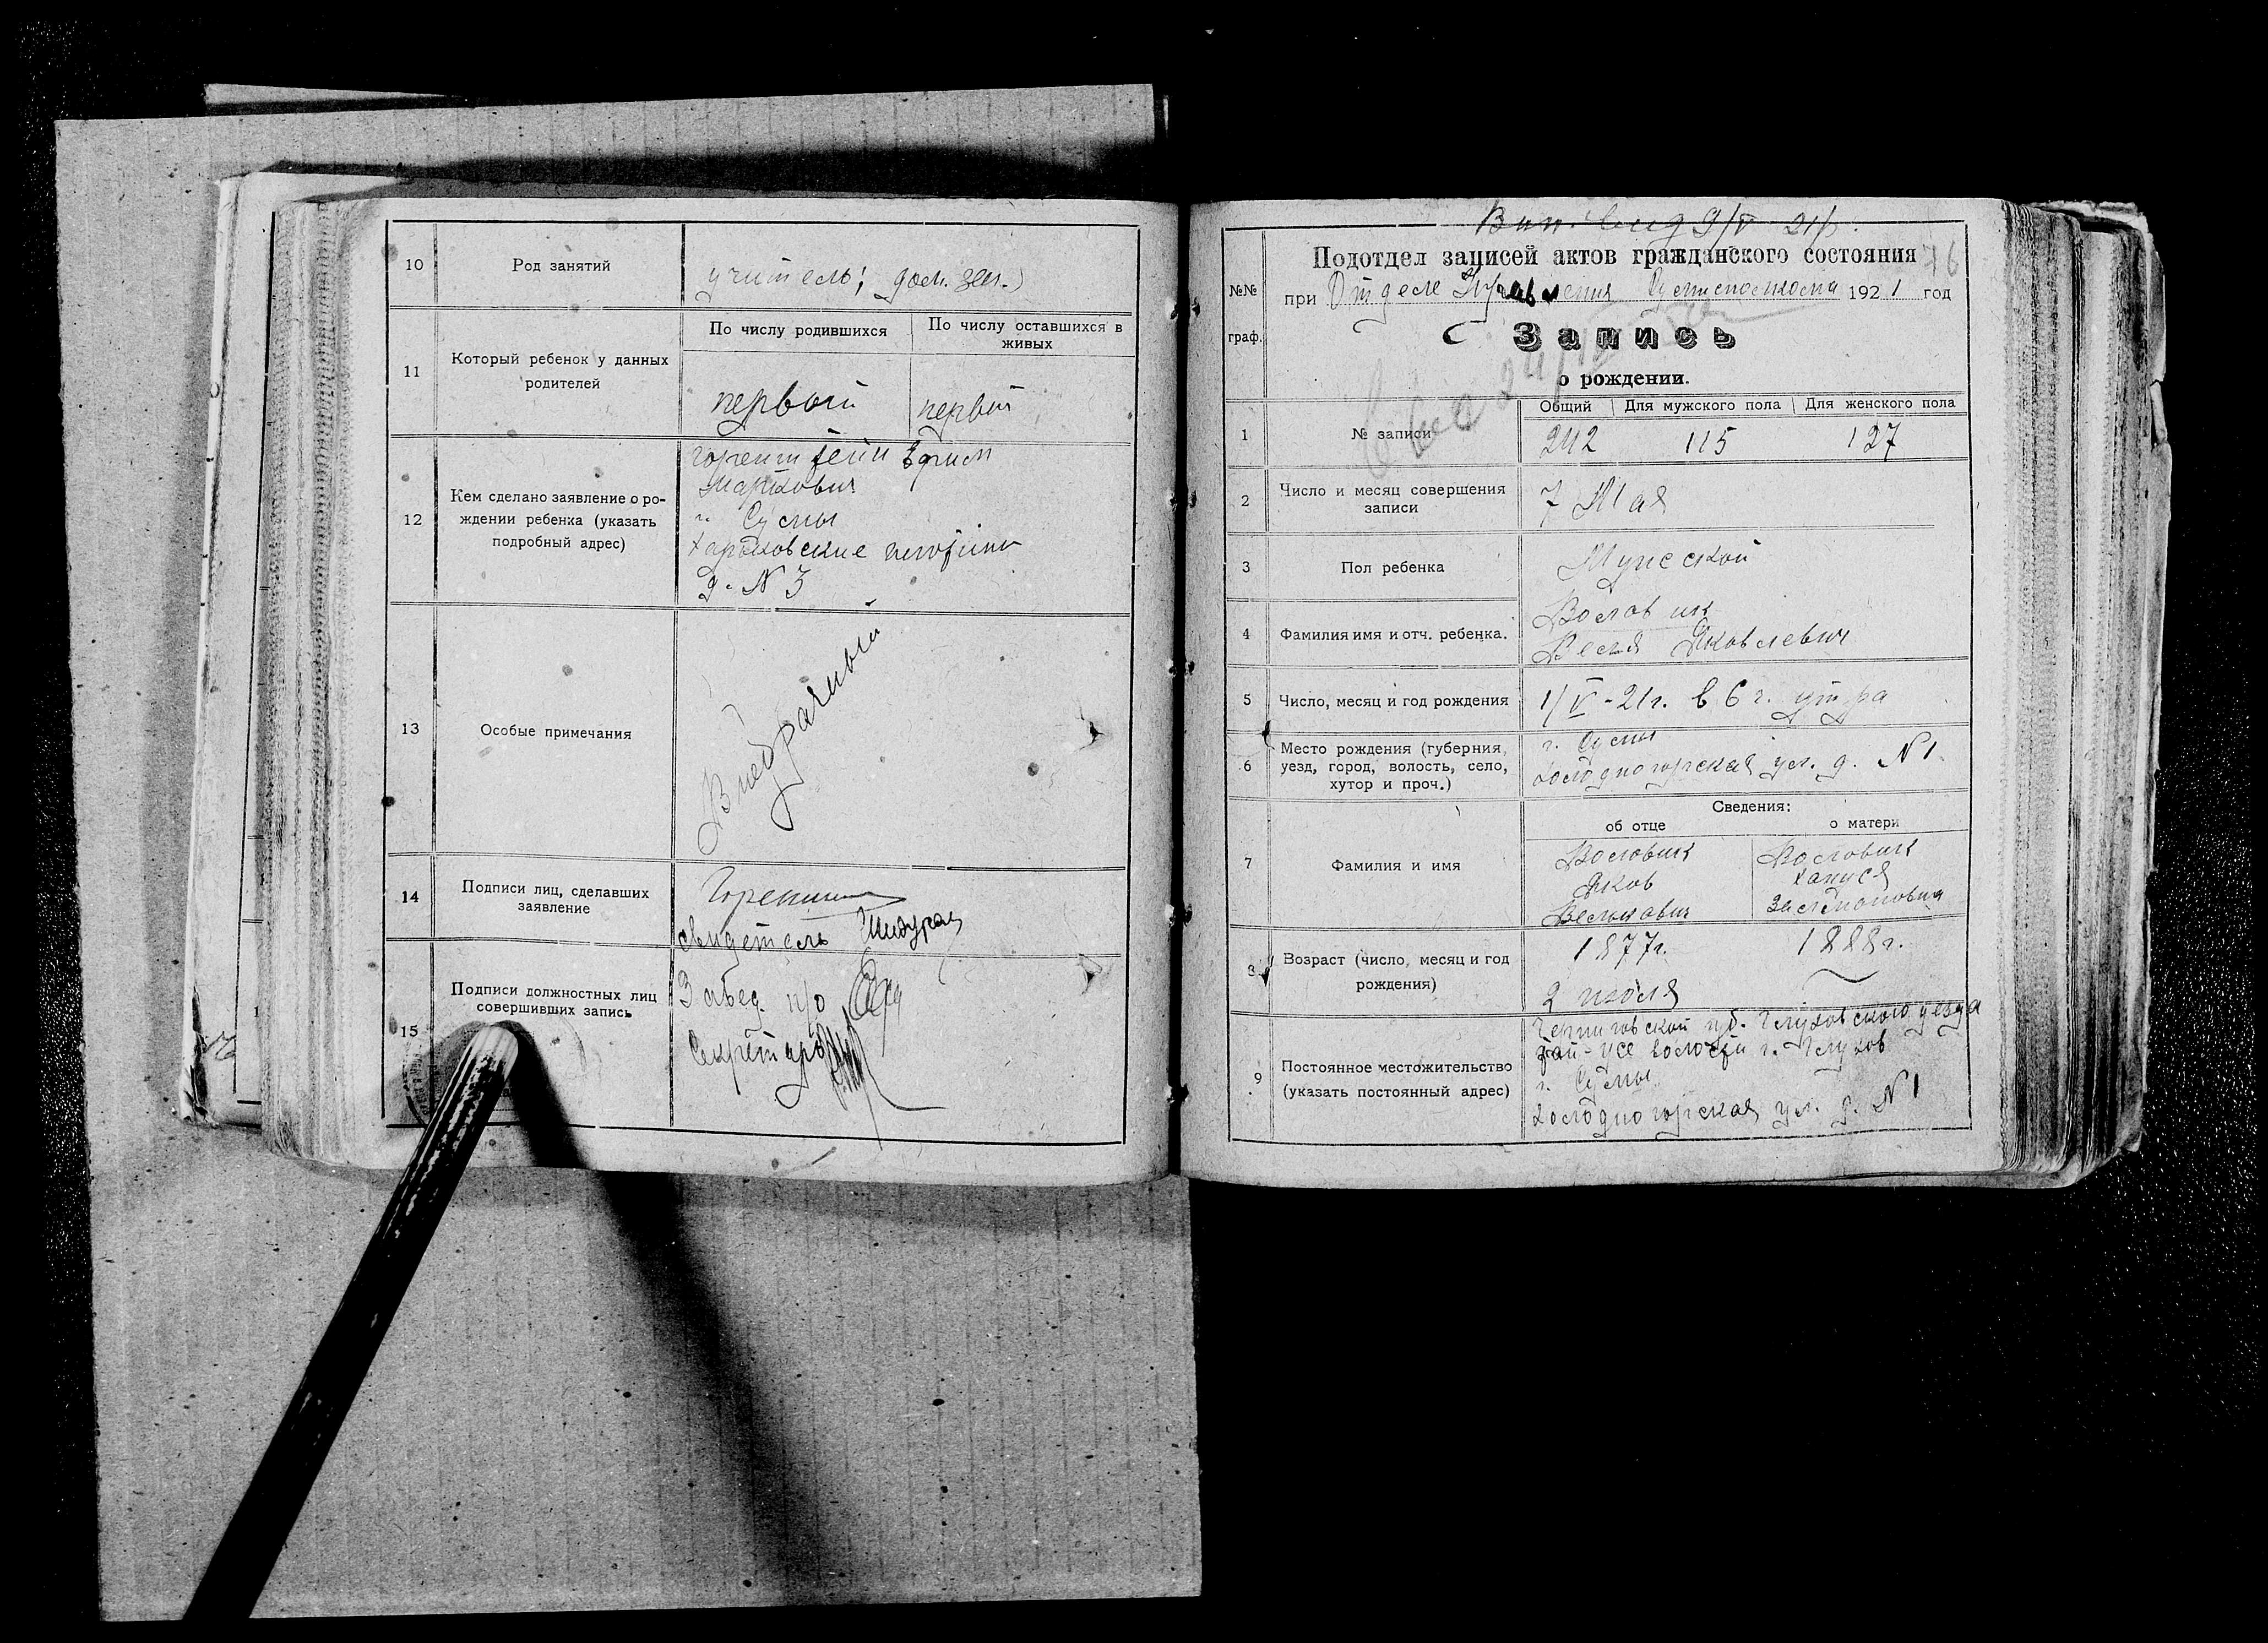 10
Род занятий
учитель; дом. зан.
11
Который ребенок у данных
родителей
По числу родившихся
По числу оставшихся в
живых
первый
первый
12
Кем сделано заявление о ро-
ждении ребенка (указать
подробный адрес)
г. Сумы
Харьковские
д. № 3
13
Особые примечания
Внебрачный
14
Подписи лиц, сделавших
заявление
свидетель
15
Подписи должностных лиц
совершивших запись
Завед. п/о
Секретарь
9/V 21
76
№№
граф.
Подотдел записей актов гражданского состояния
при Отделе Управления 1921 год
Запись
о рождении.
1
№ записи
Общий
Для мужского пола
Для женского пола
242
115
127
2
Число и месяц совершения
записи
7 Мая
3
Пол ребенка
Мужской
4
Фамилия имя и отч. ребенка.
Воловик
Яковлевич
5
Число, месяц и год рождения
1/V-21г. в 6 г. утра
6
Место рождения (губерния,
уезд, город, волость, село,
хутор и проч.)
г. Сумы
Холодногорская ул. д. № 1
Сведения:
об отце
о матери
7
Фамилия и имя
Воловик
Яков
Воловик
Хануся
8
Возраст (число, месяц и год
рождения)
1877г.
2 июля
1888г.
9
Постоянное местожительство
(указать постоянный адрес)
Черниговской губ. Глуховского уезда
волости г. Глухов
г. Сумы
Холодногорская ул. д. № 1